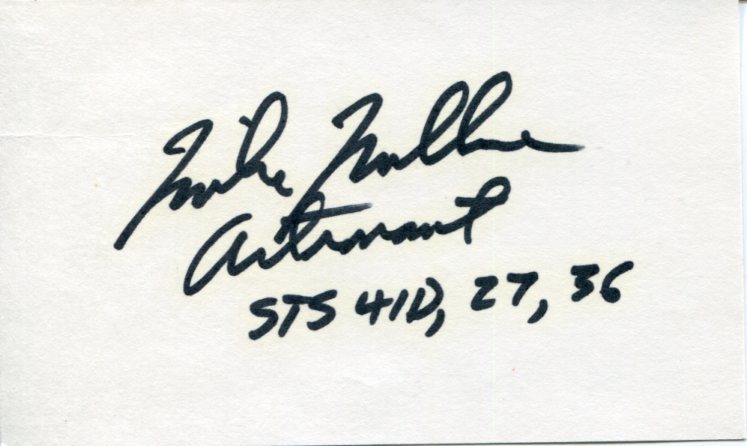 Mike Mullane
Astronaut
STS 41D, 27, 36